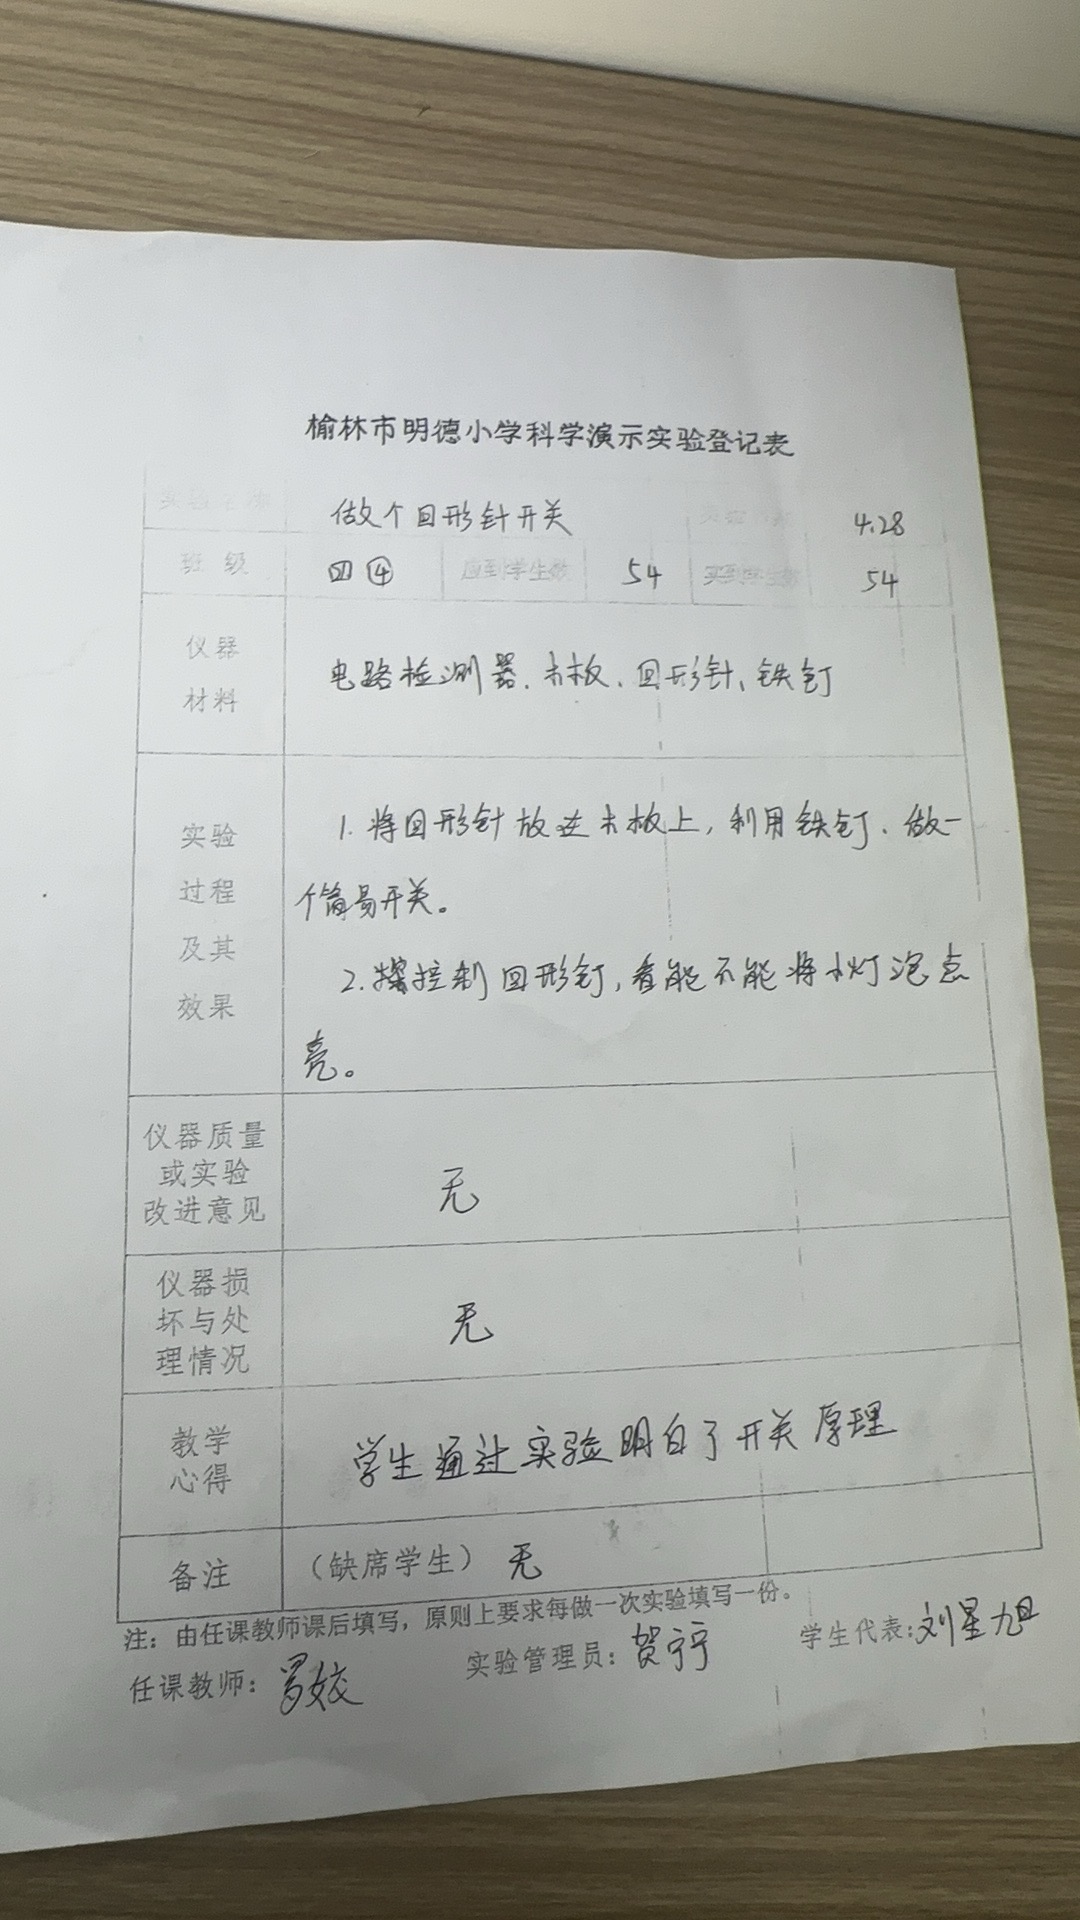 榆林市明德小学科学演示实验登记表
实验名称 做个回形针开关 4.28
班级 四④ 应到学生数 54 实到学生数 54
仪器
材料
电路检测器、木板、回形针、铁钉
实验
过程
及其
效果
1.将回形针放在木板上,利用铁钉、做一
个简易开关。
2.控制回形钉,看能不能将小灯泡点
亮。
仪器质量
或实验
改进意见
无
仪器损
坏与处
理情况
无
教学
心得
学生通过实验明白了开关原理
备注 (缺席学生) 无
注:由任课教师课后填写,原则上要求每做一次实验填写一份。
任课教师:罗姣 实验管理员:贺宁宁 学生代表:刘星旭